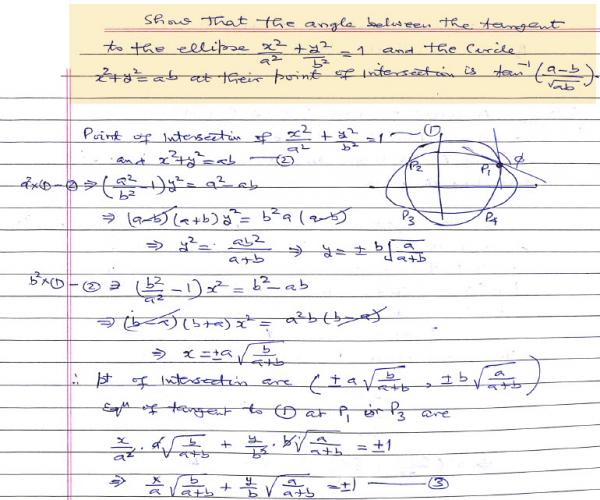 Show that the angle between the tangent
to the ellipse x²/a² + y²/b² = 1 and the Circle
x²+y²=ab at their point of intersection is tan⁻¹ (a-b/√ab).
Point of Intersectin of x²/a² + y²/b² = 1 — ①
and x²+y²=ab — ②
a²×① - ② ⇒ (a²/b² - 1) y² = a² - ab
⇒ (a-b)(a+b) y² = b²a (a-b)
⇒ y² = ab²/a+b ⇒ y = ± b√a/a+b
b²×① - ② ⇒ (b²/a² - 1) x² = b² - ab
⇒ (b-a)(b+a) x² = a²b (b-a)
⇒ x = ±a √b/a+b
∴ pt of Intersection are (± a √b/a+b , ± b √a/a+b)
Eqⁿ of tangent to ① at P₁ or P₃ are
x/a² · a√b/a+b + y/b² · b√a/a+b = ±1
⇒ x/a √b/a+b + y/b √a/a+b = ±1 — ③
P₂
P₁
φ
P₃
P₄